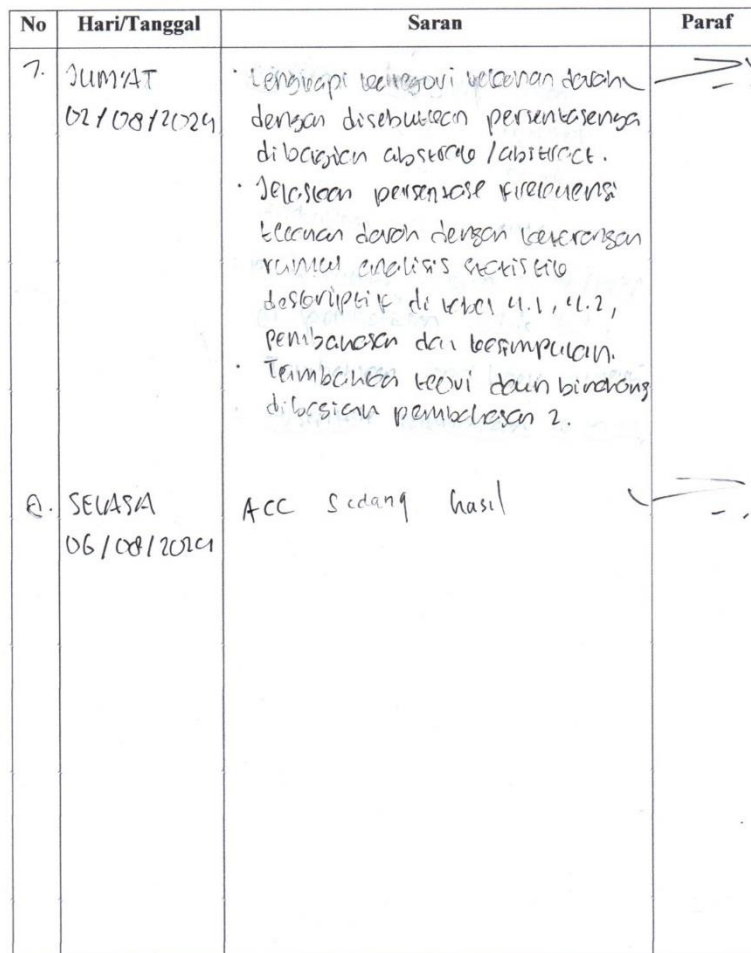 No Hari/Tanggal Saran Paraf
7. JUM'AT · Lengkapi kategori tekanan darah
02/08/2024 dengan disebutkan persentasenya
dibagian abstrak /abstract.
· Jelaskan persentase frekuensi
tekanan darah dengan keterangan
rumus analisis statistik
deskriptif di tabel 4.1, 4.2,
pembahasan dan kesimpulan.
· Tambahkan teori daun binahong
dibagian pembahasan 2.
8. SELASA ACC Sidang hasil
06/08/2024